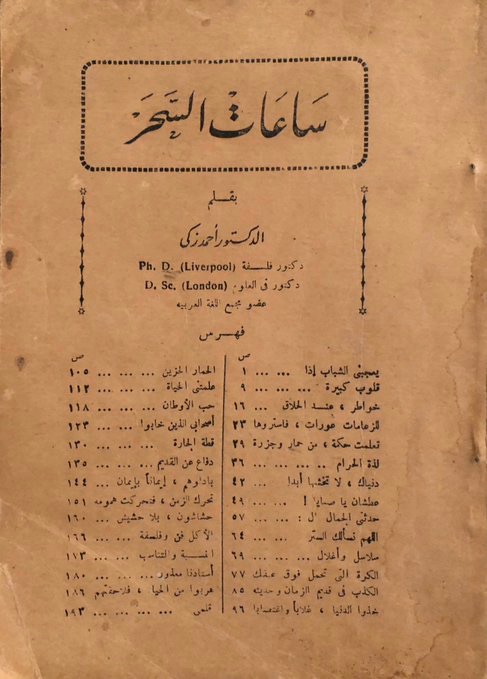 ساعات السحر
بقلم
الدكتور أحمد زكى
دكتور فلسفة Ph. D. (Liverpool)
دكتور فى العلوم D. Sc. (London)
عضو مجمع اللغة العربيه
فهرس
ص
يعجبنى الشباب إذا ... ... ١
قلوب كبيرة ... ... ... ٩
خواطر ، عند الحلاق ... ١٦
للزعامات عورات ، فاستروها ٢٣
تعلمت حكمة ، من حمار وجزرة ٢٩
لذة الحرام ... ... ... ٣٦
دنياك ، لا تخشها أبدا ... ٤٢
عطشان يا صبايا ! ... ... ٤٩
حدثنى الجمال قال : ... ... ٥٧
اللهم نسألك الستر ... ... ٦٤
سلاسل وأغلال ... ... ٦٩
الكرة التى تحمل فوق عنقك ٧٧
الكذب فى قديم الزمان وحديثه ٨٥
خذوا الدنيا ، غلابا واغتصابا ٩٦
ص
الحمار الحزين ... ... ... ١٠٥
علمتنى الحياة ... ... ... ١١٢
حب الأوطان ... ... ... ١١٨
أصحابى الذين خابوا ... ... ١٢٣
قطة الحارة ... ... ... ١٣٠
دفاع عن القديم ... ... ١٣٥
بادلوهم ، إيماناً بإيمان ... ١٤٤
تحرك الزمن ، فتحركت همومه ١٥١
حشاشون ، بلا حشيش ... ١٦٠
الأكل فن وفلسفة ... ... ١٦٦
النسبة والتناسب ... ... ١٧٣
أستاذنا معذور ... ... ... ١٨٠
هربوا من الحياة ، فلاحقتهم ١٨٦
قلمى ... ... ... ... ١٩٣